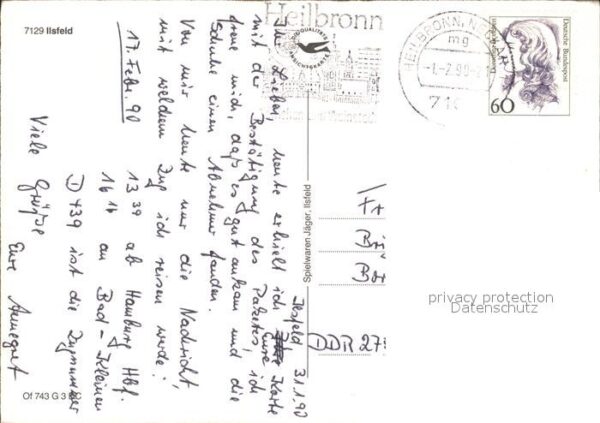 7129 Ilsfeld
Ilsfeld 31.1.90
Ihr Lieben, heute erhielt ich Eure Karte
mit der Bestätigung des Paketes, ich
freue mich, daß es gut ankam und die
Schuhe einen Abnehmer fanden.
Von mir heute nur die Nachricht,
mit welchem Zug ich reisen werde:
17. Febr. 90 13 39 ab Hamburg Hbf.
16 16 an Bad-Kleinen
D 439 ist die Zugnummer
Viele Grüße
Eure Annegret
Of 743 G 3
Spielwaren Jäger, Ilsfeld
Heilbronn
HEILBRONN, N
mg
-1.-2.90
71
Deutsche Bundespost
60
DDR 27
privacy protection
Datenschutz